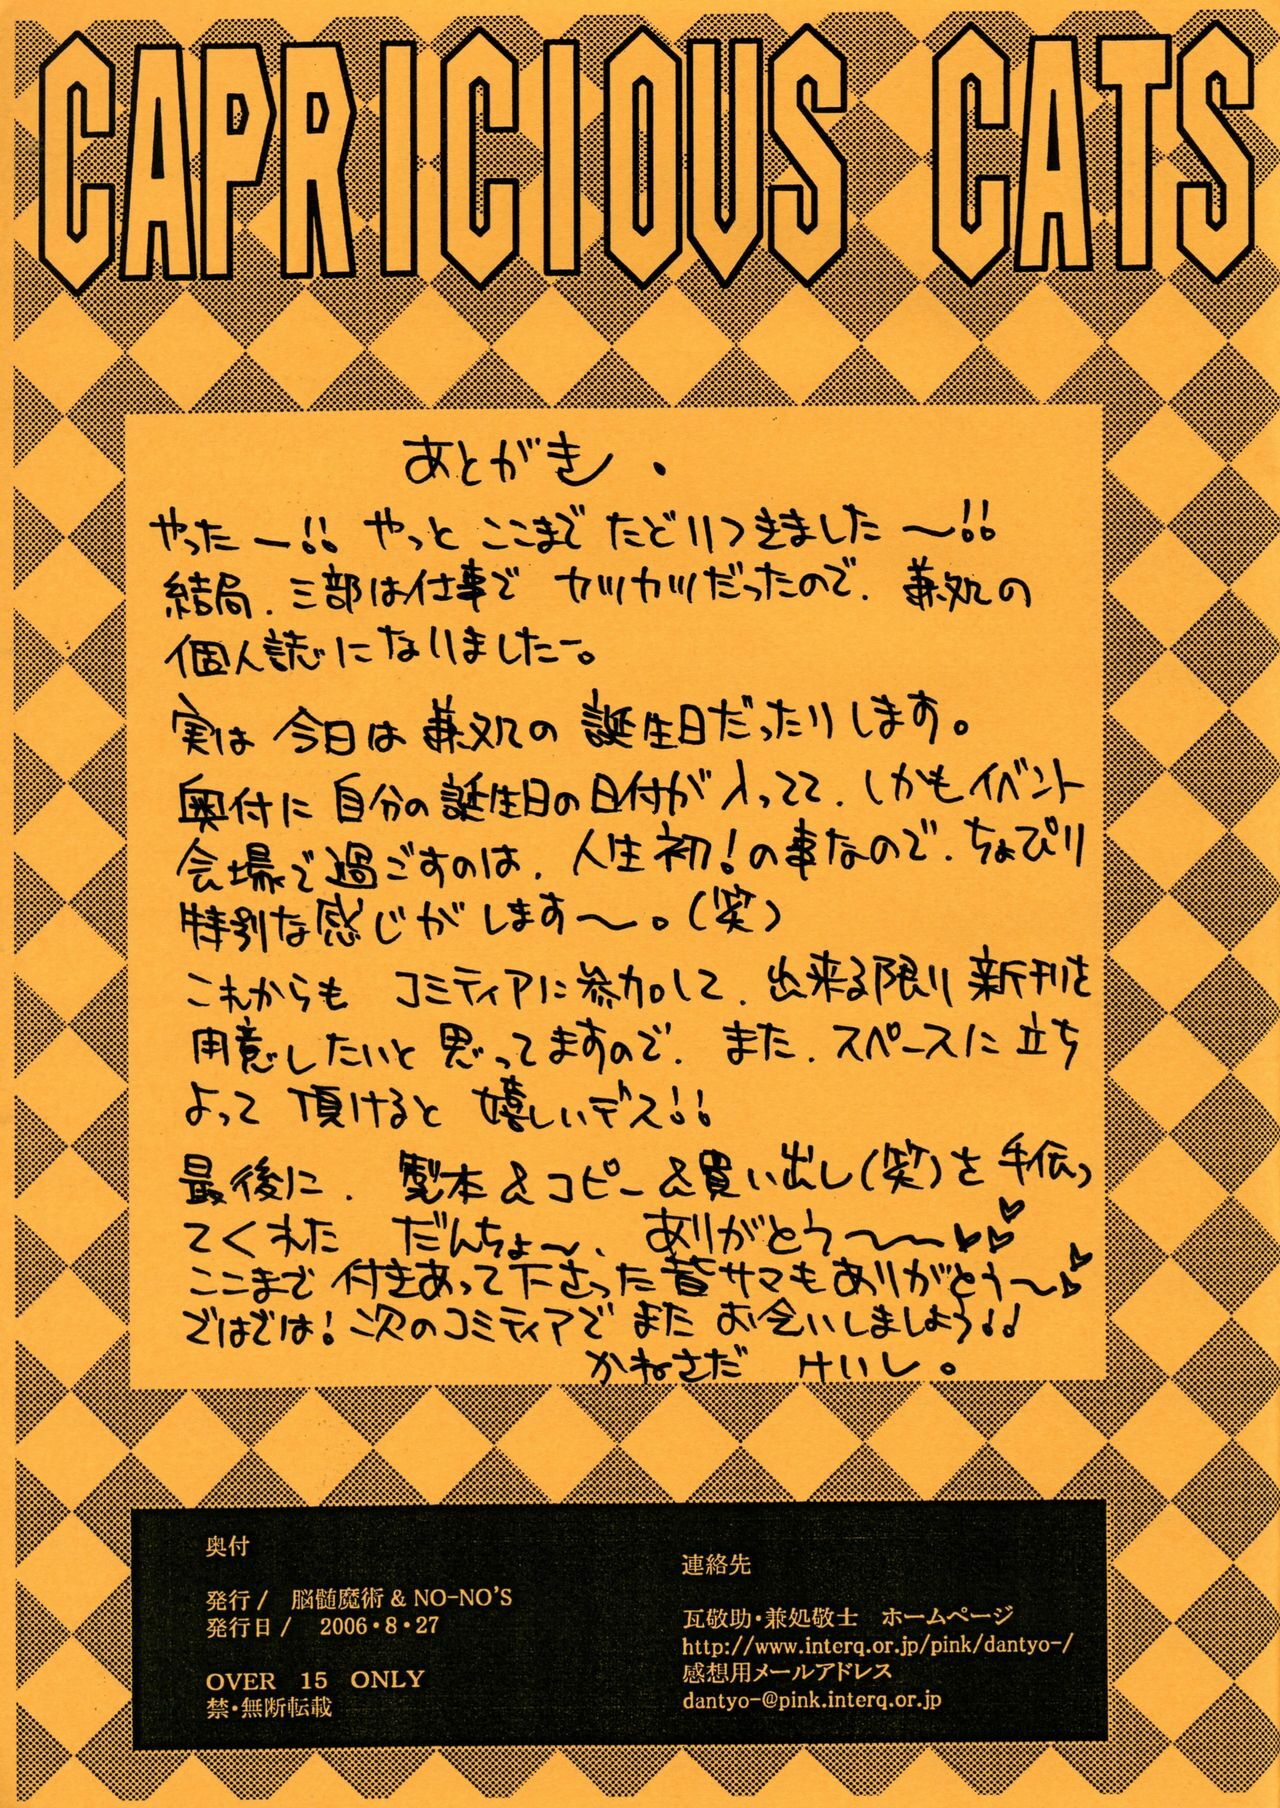 CAPRICIOUS CATS
あとがき.
やったー!! やっと ここまで たどりつきました〜!!
結局、三部は仕事で カツカツだったので、兼処の
個人誌になりましたー。
実は 今日は 兼処の 誕生日だったりします。
奥付に 自分の誕生日の日付が入ってて、しかもイベント
会場で過ごすのは、人生初!の事なので、ちょぴり
特別な感じがします〜。(笑)
これからも コミティアに参加して、出来る限り 新刊を
用意したいと思ってますので、また、スペースに立ち
よって 頂けると 嬉しいデス!!
最後に、製本&コピー&買い出し(笑)を 手伝っ
てくれた だんちょ〜、ありがとう〜〜♥♥♥
ここまで 付きあって下さった皆サマもありがとう〜♥♥
ではでは!次のコミティアで また お会いしましょう!!
かねさだ けいし。
奥付
発行/ 脳髄魔術 & NO-NO'S
発行日/ 2006・8・27
OVER 15 ONLY
禁・無断転載
連絡先
瓦敬助・兼処敬士 ホームページ
http://www.interq.or.jp/pink/dantyo-/
感想用メールアドレス
dantyo-@pink.interq.or.jp